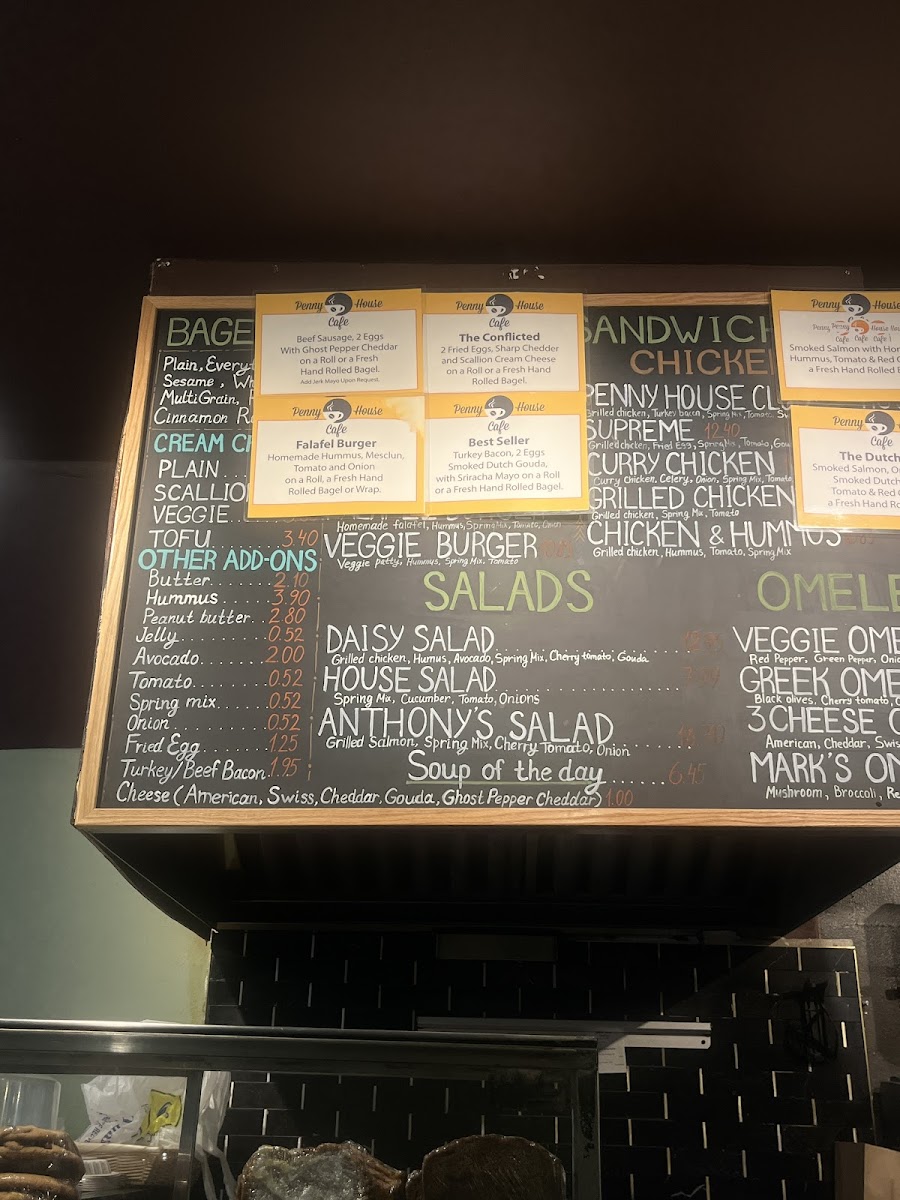 BAGE
Plain, Every
Sesame, Wh
MultiGrain,
Cinnamon R
CREAM C
PLAIN
SCALLIO
VEGGIE
TOFU 3.40
OTHER ADD-ONS
Butter 2.10
Hummus 3.90
Peanut butter 2.80
Jelly 0.52
Avocado 2.00
Tomato 0.52
Spring mix 0.52
Onion 0.52
Fried Egg 1.25
Turkey/Beef Bacon 1.95
Cheese (American, Swiss, Cheddar, Gouda, Ghost Pepper Cheddar) 1.00
Penny House
Cafe
Beef Sausage, 2 Eggs
With Ghost Pepper Cheddar
on a Roll or a Fresh
Hand Rolled Bagel.
Add Jerk Mayo Upon Request.
Penny House
Cafe
The Conflicted
2 Fried Eggs, Sharp Cheddar
and Scallion Cream Cheese
on a Roll or a Fresh Hand
Rolled Bagel.
Penny House
Cafe
Falafel Burger
Homemade Hummus, Mesclun,
Tomato and Onion
on a Roll, a Fresh Hand
Rolled Bagel or Wrap.
Penny House
Cafe
Best Seller
Turkey Bacon, 2 Eggs
Smoked Dutch Gouda,
with Sriracha Mayo on a Roll
or a Fresh Hand Rolled Bagel.
Homemade falafel, Hummus, Spring Mix, Tomato, Onion
VEGGIE BURGER
Veggie patty, Hummus, Spring Mix, Tomato
SALADS
DAISY SALAD
Grilled chicken, Humus, Avocado, Spring Mix, Cherry tomato, Gouda
HOUSE SALAD
Spring Mix, Cucumber, Tomato, Onions
ANTHONY'S SALAD
Grilled Salmon, Spring Mix, Cherry Tomato, Onion
Soup of the day 6.45
SANDWICH
CHICKE
PENNY HOUSE CL
Grilled chicken, Turkey bacon, Spring Mix, Tomato, Sw
SUPREME 12.40
Grilled chicken, Fried Egg, Spring Mix, Tomato, Gou
CURRY CHICKEN
Curry Chicken, Celery, Onion, Spring Mix, Tomato
GRILLED CHICKEN
Grilled chicken, Spring Mix, Tomato
CHICKEN & HUMMUS
Grilled chicken, Hummus, Tomato, Spring Mix
Penny House
Smoked Salmon with Hom
Hummus, Tomato & Red O
a Fresh Hand Rolled B
Penny
Cafe
The Dutch
Smoked Salmon, On
Smoked Dutch
Tomato & Red O
a Fresh Hand Ro
OMELE
VEGGIE OME
Red Pepper, Green Pepper, Onio
GREEK OME
Black olives, Cherry tomato,
3 CHEESE
American, Cheddar, Swis
MARK'S OM
Mushroom, Broccoli, Re